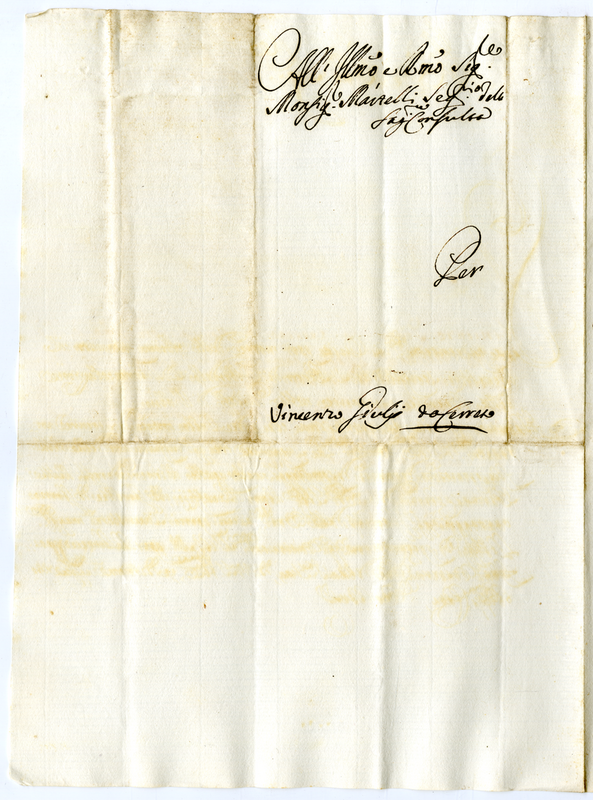 All' Illmo e Rmo Sigre
Monsigr Marcelli Segrio della
Sagra Consulta
Per
Vincenzo Giulij da Cerreto